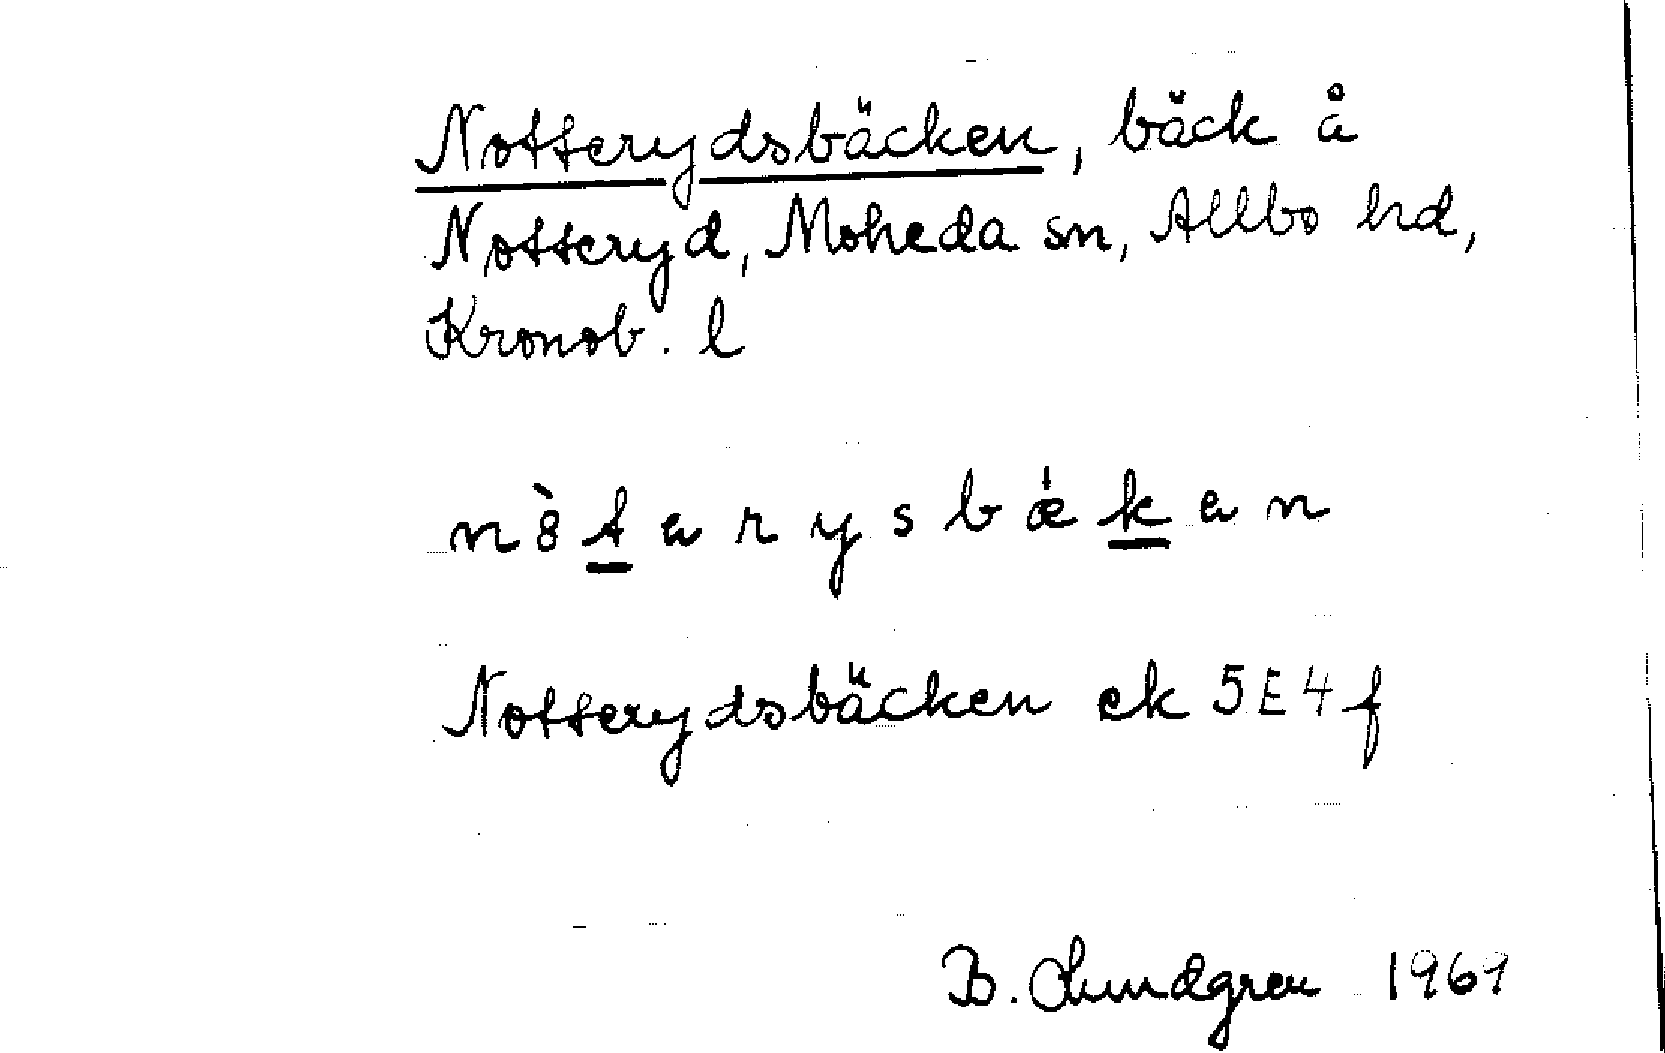 Notterydsbäcken, bäck å
Notteryd, Moheda sn, Allbo hd,
Kronob. l
n ò t a r y s b æ k a n
Notterydsbäcken ek 5E4f
B. Lundgren 1969